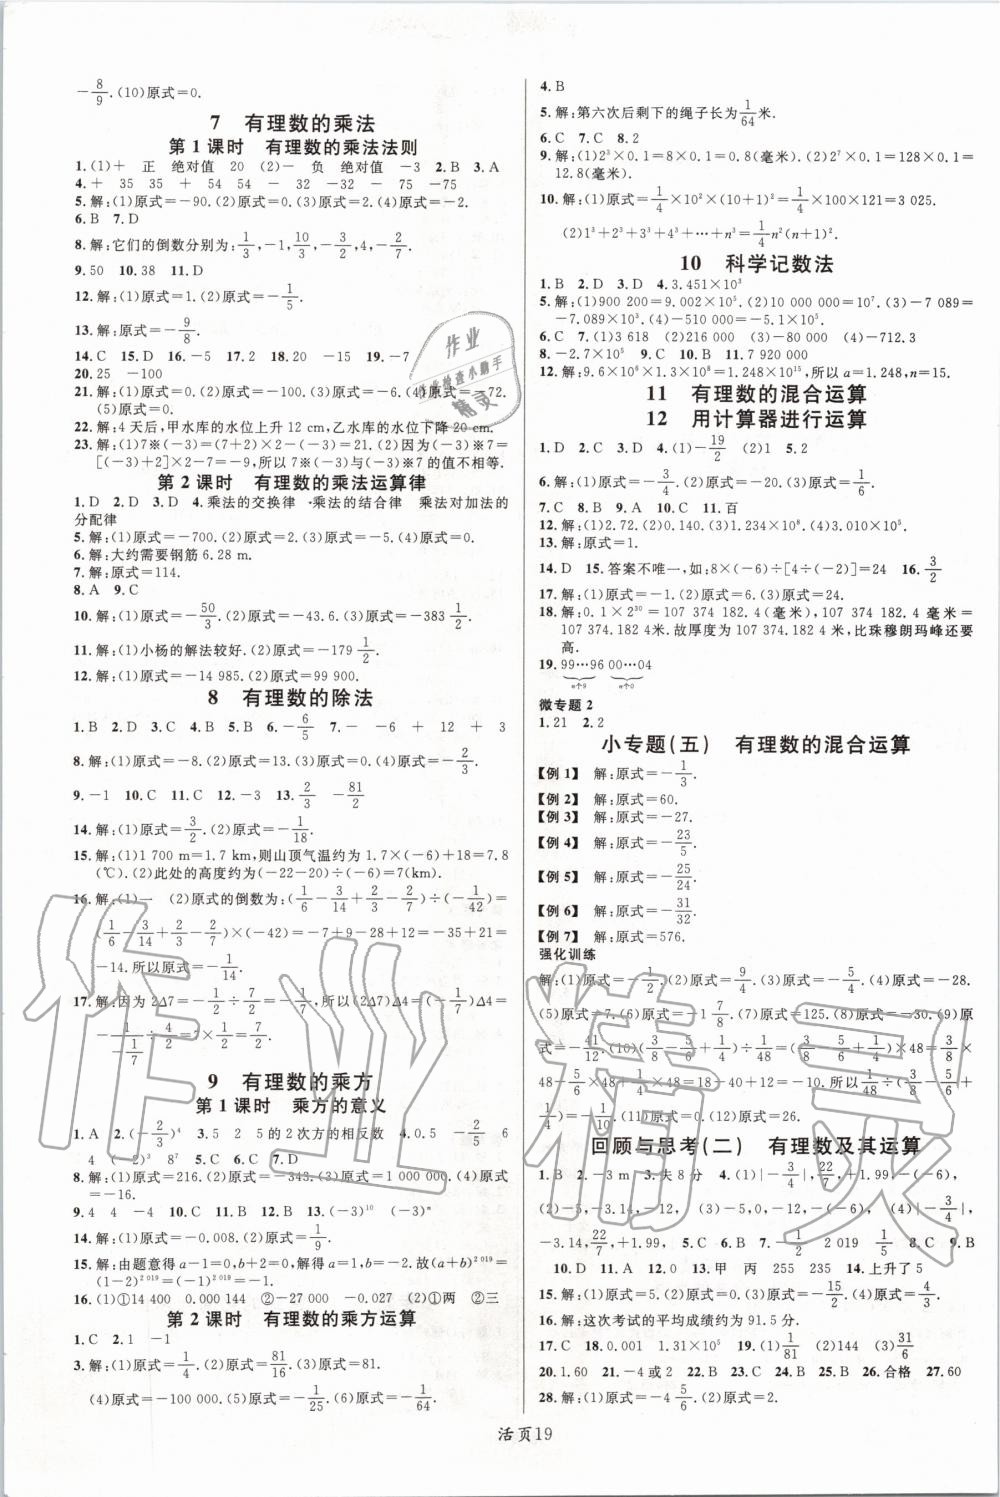 -8/9.(10)原式=0.
7 有理数的乘法
第1课时 有理数的乘法法则
1.(1)+ 正 绝对值 20 (2)- 负 绝对值 -3 2.B 3.A
4.+ 35 35 + 54 54 - 32 -32 - 75 -75
5.解:(1)原式=-90.(2)原式=0.(3)原式=2.(4)原式=-2.
6.B 7.D
8.解:它们的倒数分别为:1/3,-1,10/3,-3/2,4,-2/7.
9.50 10.38 11.D
12.解:(1)原式=1.(2)原式=-1/5.
13.解:原式=-9/8.
14.C 15.D 16.-5 17.2 18.20 -15 19.-7
20.25 -100
21.解:(1)原式=0.(2)原式=-100.(3)原式=-6.(4)原式=-72.
(5)原式=0.
22.解:4天后,甲水库的水位上升12 cm,乙水库的水位下降20 cm.
23.解:(1)7※(-3)=(7+2)×2-(-3)=21.(2)因为(-3)※7=
[(-3)+2]×2-7=-9,所以7※(-3)与(-3)※7的值不相等.
第2课时 有理数的乘法运算律
1.D 2.D 3.D 4.乘法的交换律 乘法的结合律 乘法对加法的
分配律
5.解:(1)原式=-700.(2)原式=2.(3)原式=-5.(4)原式=0.
6.解:大约需要钢筋6.28 m.
7.解:原式=114.
8.A 9.C
10.解:(1)原式=-50/3.(2)原式=-43.6.(3)原式=-383 1/2.
11.解:(1)小杨的解法较好.(2)原式=-179 1/2.
12.解:(1)原式=-14 985.(2)原式=99 900.
8 有理数的除法
1.B 2.D 3.C 4.B 5.B 6.-6/5 7.- -6 + 12 + 3
8.解:(1)原式=-8.(2)原式=13.(3)原式=0.(4)原式=-2/3.
9.-1 10.C 11.C 12.-3 13.2/3 -81/2
14.解:(1)原式=3/2.(2)原式=-1/18.
15.解:(1)1 700 m=1.7 km,则山顶气温约为1.7×(-6)+18=7.8
(℃).(2)此处的高度约为(-22-20)÷(-6)=7(km).
16.解:(1)一 (2)原式的倒数为:(1/6-3/14+2/3-2/7)÷(-1/42)=
(1/6-3/14+2/3-2/7)×(-42)=-7+9-28+12=-35+21=
-14.所以原式=-1/14.
17.解:因为2Δ7=-1/2÷7/2=-1/7,所以(2Δ7)Δ4=(-1/7)Δ4=
-1/(-1/7)÷4/2=7×1/2=7/2.
9 有理数的乘方
第1课时 乘方的意义
1.A 2.(-2/3)⁴ 3.5 2 5的2次方的相反数 4.0.5 -2/5 6
4 (-2)³ 8⁷ 5.C 6.C 7.D
8.解:(1)原式=216.(2)原式=-343.(3)原式=1 000 000.(4)原式
=-16.
9.4 4 -4 10.C 11.C 12.B 13.(-3)¹⁰ (-3)ⁿ
14.解:(1)原式=-0.008.(2)原式=1/9.
15.解:由题意得a-1=0,b+2=0,解得a=1,b=-2.故(a+b)²⁰¹⁹=
(-1)²⁰¹⁹=-1.
16.(1)①14 400 0.000 144 ②-27 000 -0.027 (2)①两 ②三
第2课时 有理数的乘方运算
1.C 2.1 -1
3.解:(1)原式=1/4.(2)原式=81/16.(3)原式=81.
(4)原式=-100 000.(5)原式=-1/25.(6)原式=-1/64.
4.B
5.解:第六次后剩下的绳子长为1/64米.
6.C 7.C 8.2
9.解:(1)2³×0.1=8×0.1=0.8(毫米).(2)2⁷×0.1=128×0.1=
12.8(毫米).
10.解:(1)原式=1/4×10²×(10+1)²=1/4×100×121=3 025.
(2)1³+2³+3³+4³+…+n³=1/4n²(n+1)².
10 科学记数法
1.B 2.D 3.D 4.3.451×10³
5.解:(1)900 200=9.002×10⁵.(2)10 000 000=10⁷.(3)-7 089=
-7.089×10³.(4)-510 000=-5.1×10⁵.
6.C 7.(1)3 120 (2)216 000 (3)-80 000 (4)-712.3
8.-2×10⁵ 9.C 10.B 11.7 920 000
12.解:9.6×10⁶×1.3×10⁸=1.248×10¹⁵,所以a=1.248,n=15.
11 有理数的混合运算
12 用计算器进行运算
1.D 2.C 3.D 4.(1)-19/2 (2)1 5.2
6.解:(1)原式=0.(2)原式=-5.(3)原式=21.(4)原式=1/6.
7.C 8.B 9.A 10.C 11.百
12.解:(1)2.72.(2)0.140.(3)1.234×10⁸.(4)3.010×10⁵.
13.解:原式=1.
14.D 15.答案不唯一,如:8×(-6)÷[4÷(-2)]=24 16.3/2
17.解:(1)原式=-1.(2)原式=6.(3)原式=24.
18.解:0.1×2³⁰=107 374 182.4(毫米),107 374 182.4毫米=
107 374.182 4米.故厚度为107 374.182 4米,比珠穆朗玛峰还要
高.
19.99…96 00…04
n个9 n个0
微专题2
1.21 2.2
小专题(五) 有理数的混合运算
【例1】 解:原式=-1/3.
【例2】 解:原式=60.
【例3】 解:原式=-27.
【例4】 解:原式=-23/5.
【例5】 解:原式=-25/24.
【例6】 解:原式=-31/32.
【例7】 解:原式=576.
强化训练
解:(1)原式=-1/2.(2)原式=9/4.(3)原式=-5/4.(4)原式=-28.
(5)原式=7.(6)原式=-1 7/8.(7)原式=125.(8)原式=-30.(9)原
式=-41/12.(10)(3/8-5/6+1/4)÷1/48=(3/8-5/6+1/4)×48=3/8×
48-5/6×48+1/4×48=18-40+12=-10.所以1/48÷(3/8-5/6+
1/4)=-1/10.(11)原式=0.(12)原式=26.
回顾与思考(二) 有理数及其运算
1.B 2.-3 m 3.失8分 4.(1)|-3/4|,22/7,+1.99,-(-6),
(2)-5,-3.14,-12, (3)-5,0,-12,-(-6), (4)|-3/4|,
-3.14,22/7,+1.99, 5.C 6.B 7.-1/2 2 019 1/5 8.C 9.B
10.D 11.A 12.D 13.甲 丙 255 235 14.上升了5
15.解:(1)原式=5.(2)原式=4.(3)原式=-15/2.(4)原式=4.
16.解:这次考试的平均成绩约为91.5分.
17.C 18.0.001 1.31×10⁵ 19.(1)1/81 (2)144 (3)31/6
20.1.60 21.-4或2 22.B 23.A 24.B 25.B 26.合格 27.60
28.解:(1)原式=-4 5/6.(2)原式=2.
活页19
作业
检查小助手
精灵
作业精灵